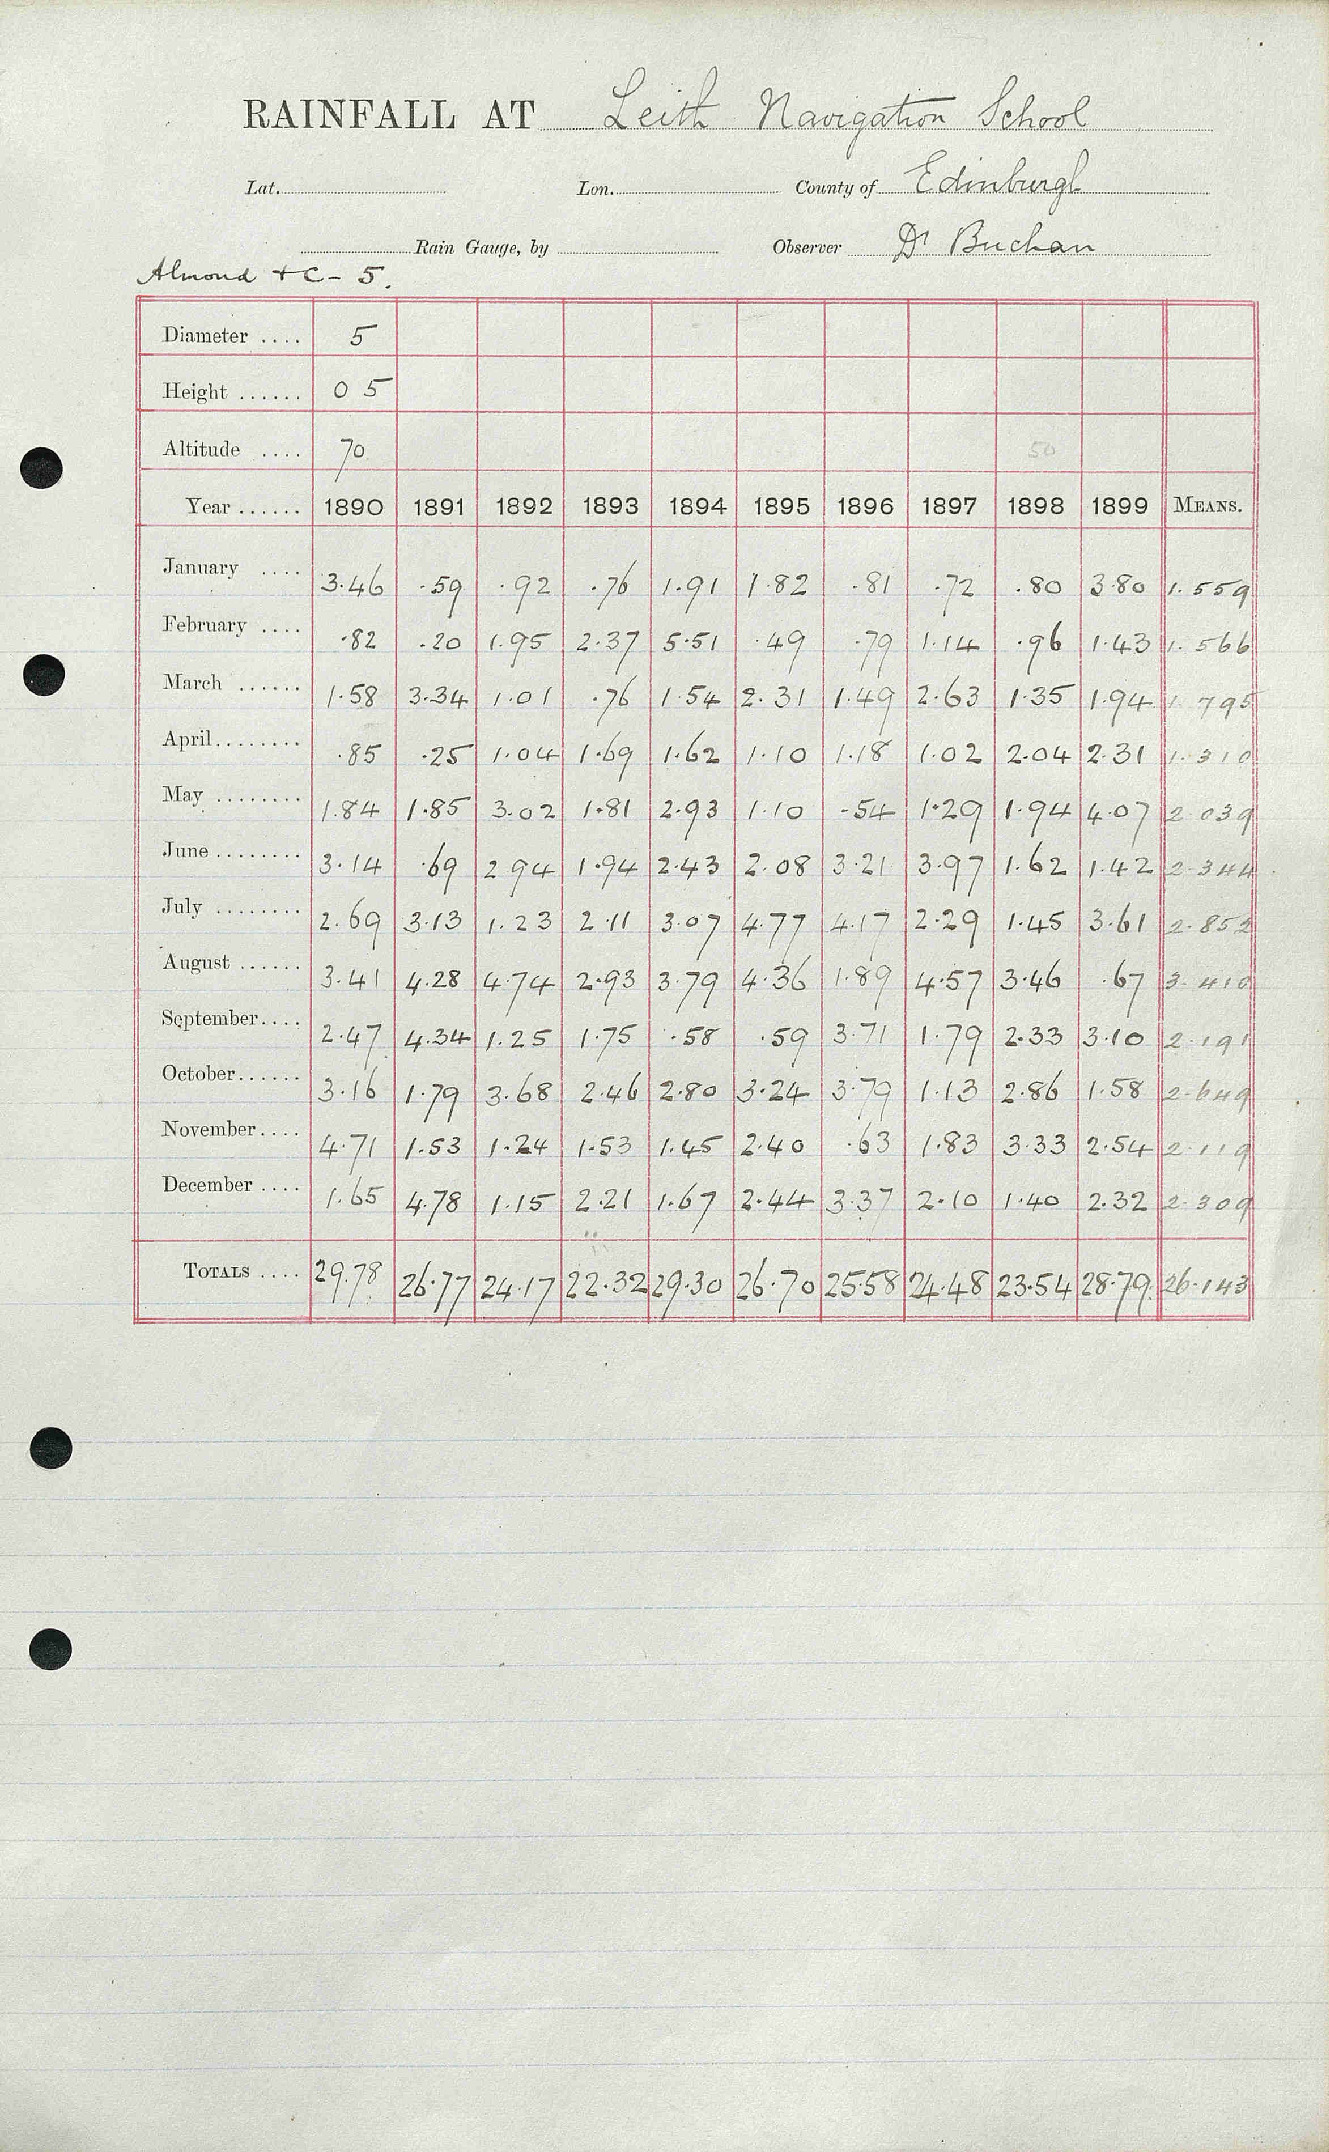 RAINFALL AT Leith Navigation School
Lat. Lon. County of Edinburgh
Rain Gauge, by Observer Dr Buchan
Almond + C - 5.
Diameter .... 5
Height ...... 0 5
Altitude .... 70 50
Year ...... 1890 1891 1892 1893 1894 1895 1896 1897 1898 1899 MEANS.
January .... 3.46 .59 .92 .76 1.91 1.82 .81 .72 .80 3.80 1.559
February .... .82 .20 1.95 2.37 5.51 .49 .79 1.14 .96 1.43 1.566
March ...... 1.58 3.34 1.01 .76 1.54 2.31 1.49 2.63 1.35 1.94 1.795
April ........ .85 .25 1.04 1.69 1.62 1.10 1.18 1.02 2.04 2.31 1.310
May ........ 1.84 1.85 3.02 1.81 2.93 1.10 .54 1.29 1.94 4.07 2.039
June ........ 3.14 .69 2.94 1.94 2.43 2.08 3.21 3.97 1.62 1.42 2.344
July ........ 2.69 3.13 1.23 2.11 3.07 4.77 4.17 2.29 1.45 3.61 2.852
August ...... 3.41 4.28 4.74 2.93 3.79 4.36 1.89 4.57 3.46 .67 3.410
September.... 2.47 4.34 1.25 1.75 .58 .59 3.71 1.79 2.33 3.10 2.191
October...... 3.16 1.79 3.68 2.46 2.80 3.24 3.79 1.13 2.86 1.58 2.649
November.... 4.71 1.53 1.24 1.53 1.45 2.40 .63 1.83 3.33 2.54 2.119
December .... 1.65 4.78 1.15 2.21 1.67 2.44 3.37 2.10 1.40 2.32 2.309
TOTALS .... 29.78 26.77 24.17 22.32 29.30 26.70 25.58 24.48 23.54 28.79 26.143